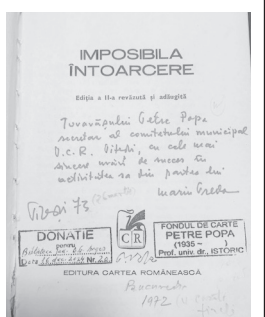 IMPOSIBILA
ÎNTOARCERE
Ediția a II-a revăzută și adăugită
Tovarășului Petre Popa
secretar al comitetului municipal
P.C.R. Pitești, cu cele mai
sincere urări de succes în
activitatea sa din partea lui
Marin Preda
73
DONAȚIE
pentru
Biblioteca Jud. Argeș
Data Nr.
CR
FONDUL DE CARTE
PETRE POPA
(1935 – )
Prof. univ. dr., ISTORIC
EDITURA CARTEA ROMÂNEASCĂ
București
1972